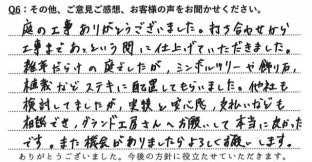 Q6：その他、ご意見ご感想、お客様の声をお聞かせください。
庭の工事ありがとうございました。打ち合わせから
工事まであっという間に仕上げていただきました。
雑草だらけの庭でしたが、シンボルツリーや飾り石、
植栽などステキに配置してもらいました。他社も
検討してましたが、実績と安心感、支払いなども
相談でき、グランド工房さんへお願いして本当に良かった
です。また機会がありましたらよろしくお願いします。
ありがとうございました。今後の方針に役立たせていただきます。